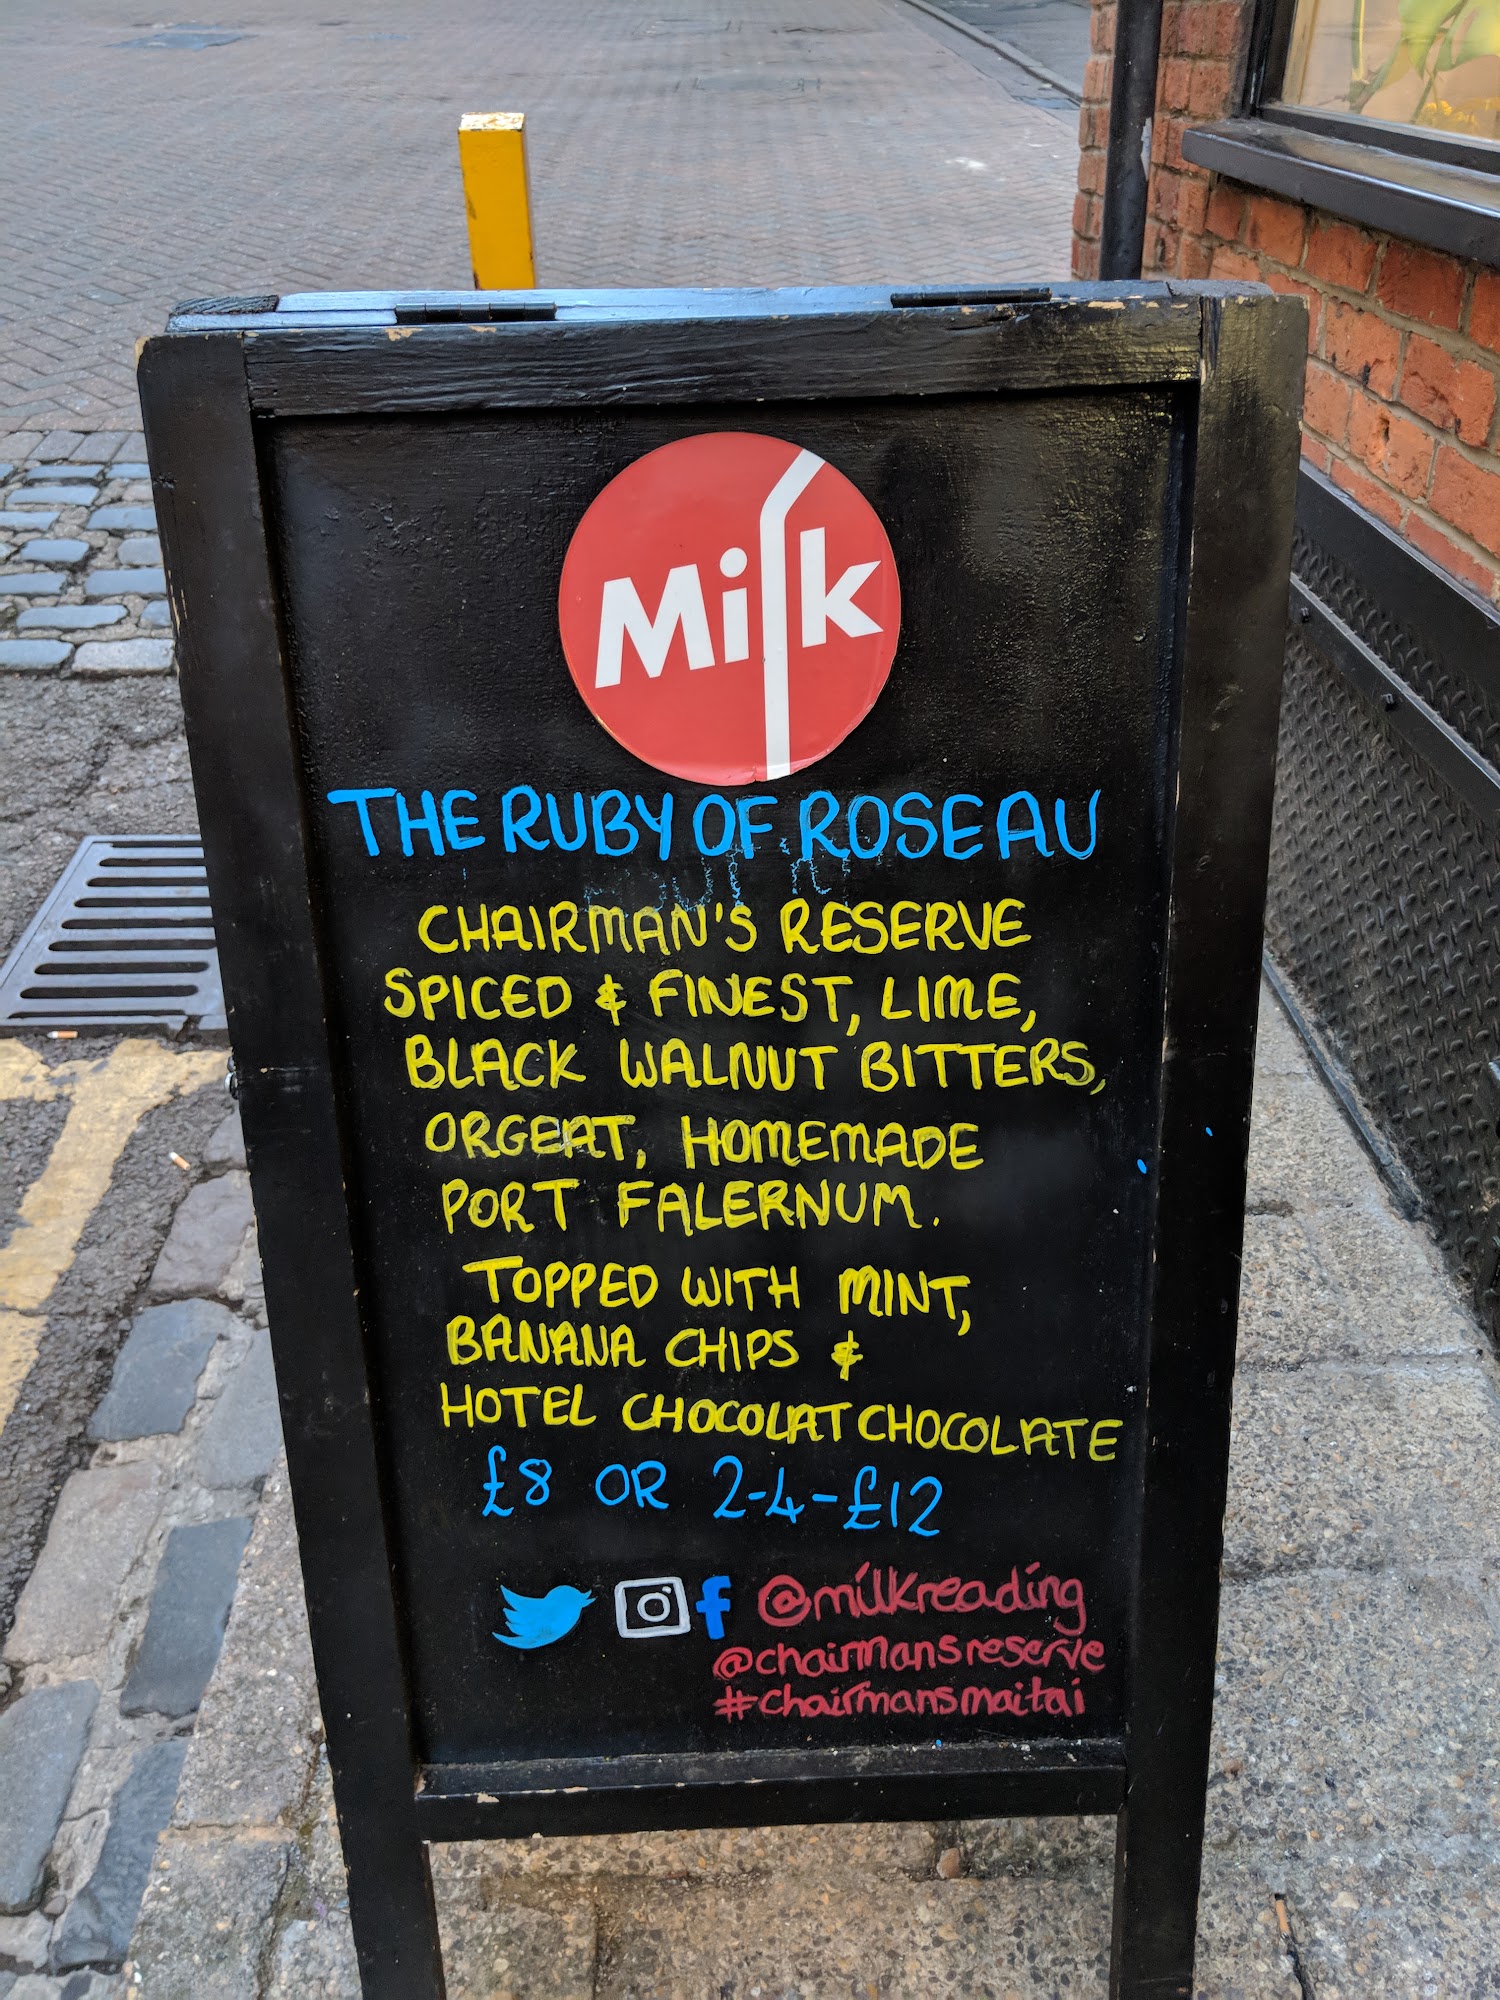 Milk
THE RUBY OF ROSEAU
CHAIRMAN'S RESERVE
SPICED & FINEST, LIME,
BLACK WALNUT BITTERS,
ORGEAT, HOMEMADE
PORT FALERNUM.
TOPPED WITH MINT,
BANANA CHIPS &
HOTEL CHOCOLAT CHOCOLATE
£8 OR 2-4-£12
f @milkreading
@chairmansreserve
#chairmansmaitai